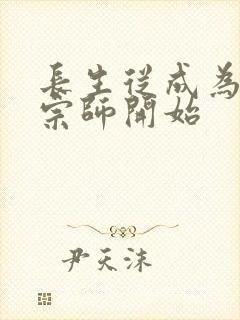 長生從成為
宗師開始
尹天沫